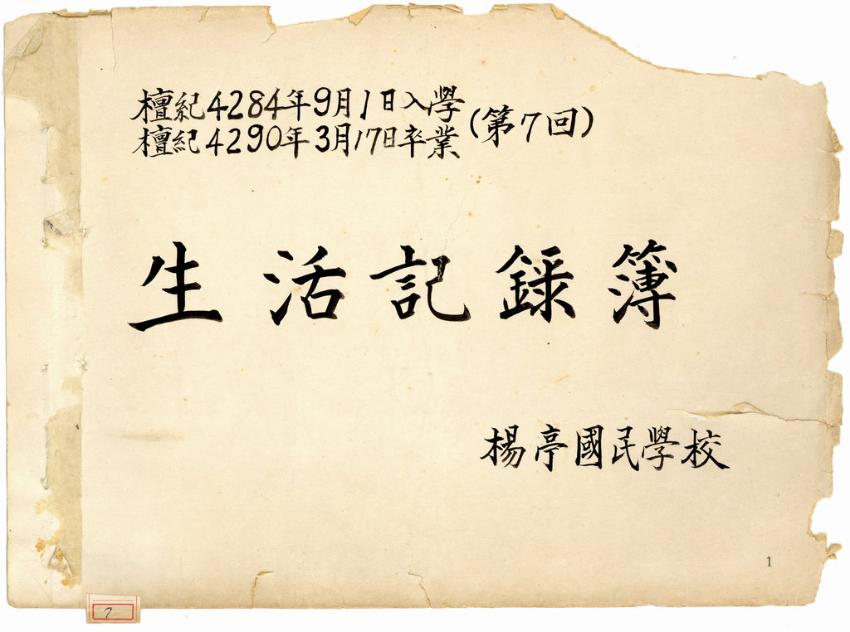 檀紀4284年9月1日入學
檀紀4290年3月17日卒業
(第7回)
生活記録簿
楊亭國民學校
1
7